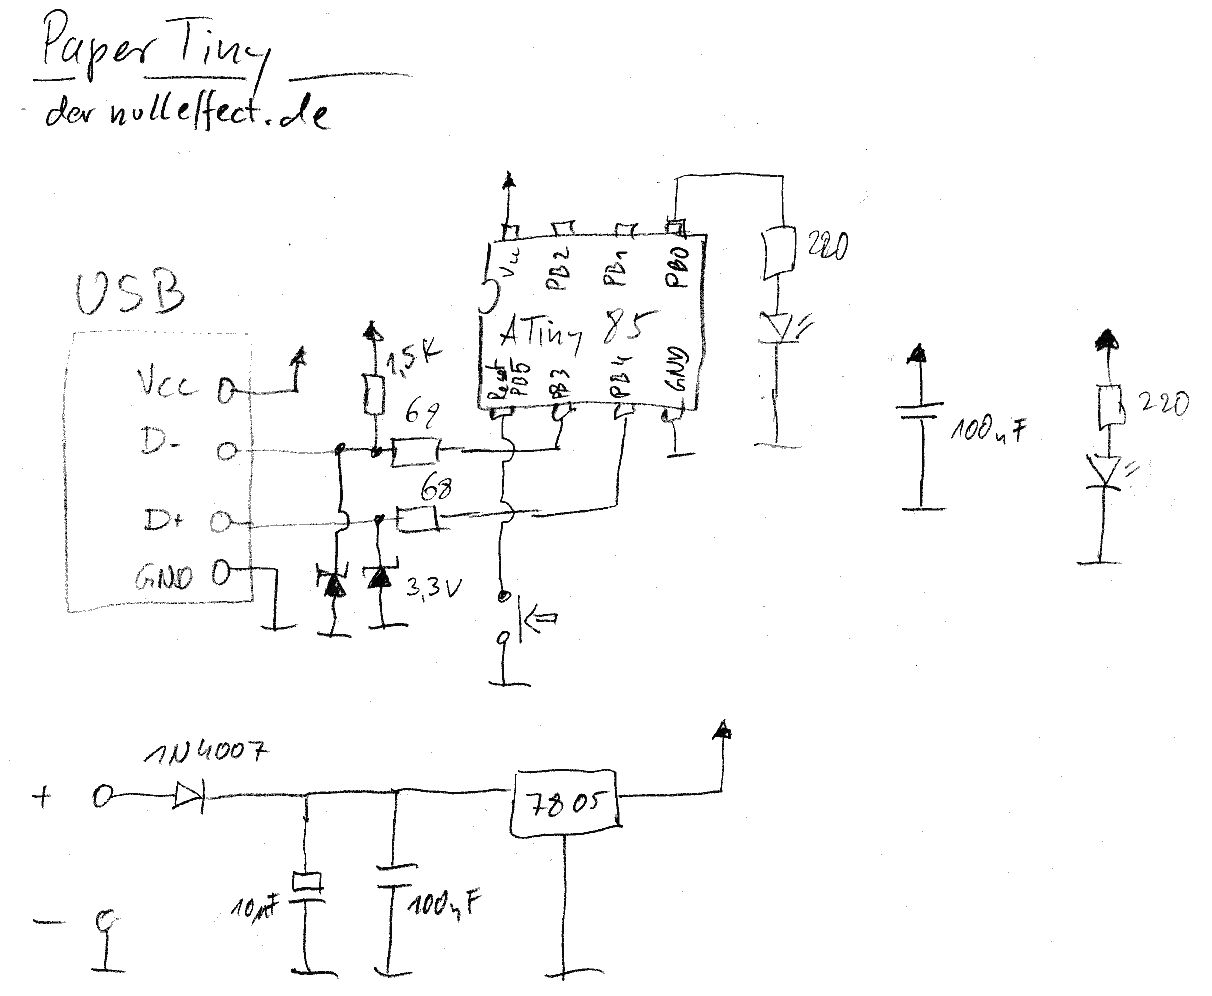 Paper Tiny
der nulleffect.de
USB
Vcc
D-
D+
GND
Vcc
PB2
PB1
PB0
ATiny 85
Reset
PB5
PB3
PB4
GND
220
1,5K
68
68
3,3V
100nF
220
1N4007
+
7805
10µF
100nF
-